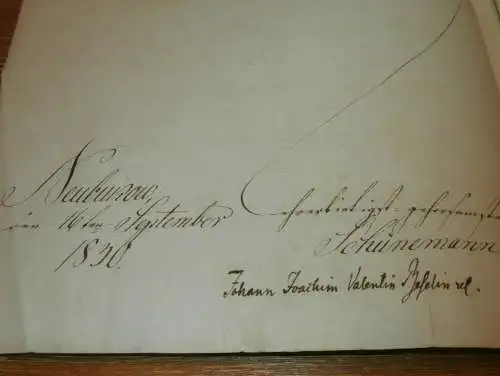 Neuburow,
den 16ten September
1830.
Ehrerbietigst-gehorsamster
Schünemann
Johann Joachim Valentin Beselin rel.